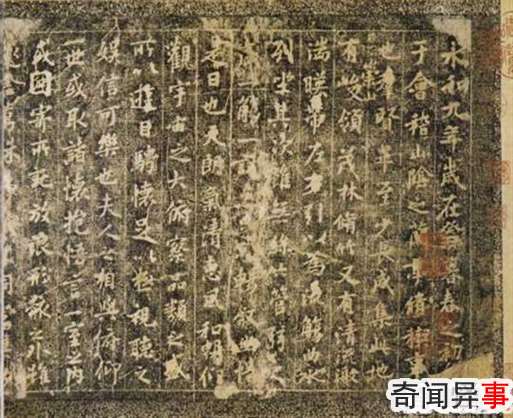 永和九年歲在癸丑暮春之初
于會稽山陰之蘭亭脩稧事
也羣賢畢至少長咸集此地
有崇山峻領茂林脩竹又有清流激
湍暎帶左右引以為流觴曲水
列坐其次雖無絲竹管弦之
一觴一暢敘幽情
是日也天朗氣清惠風和暢仰
觀宇宙之大俯察品類之盛
所以遊目騁懷足以極視聽之
娛信可樂也夫人之相與俯仰
一世或取諸懷抱悟言一室之內
或因寄所託放浪形骸之外雖
萬殊同
奇闻异事